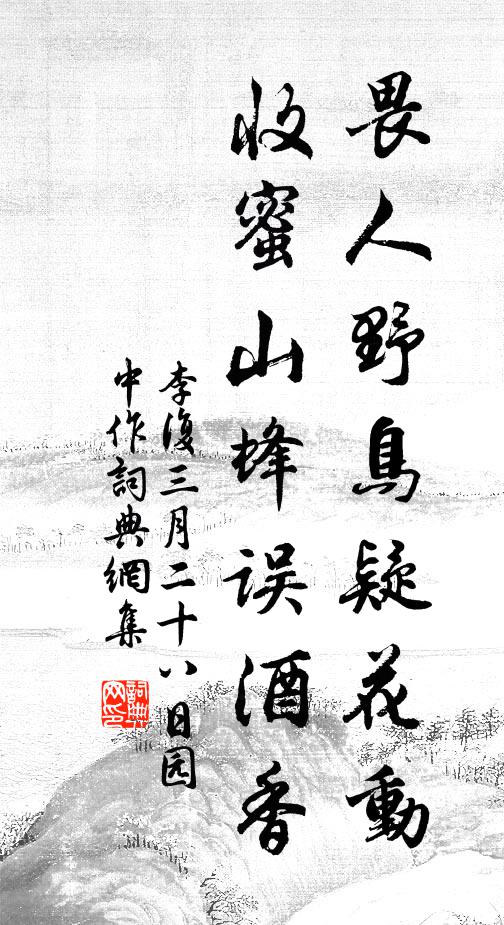 畏人野鳥疑花動
收蜜山蜂误酒香
李復三月二十八日园
中作詞典網集
詞典
网印